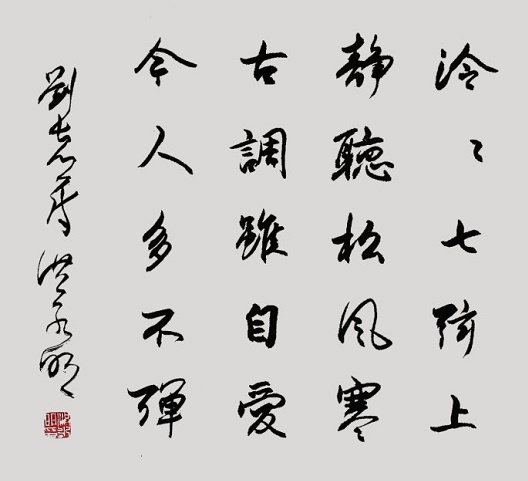 泠〻七弦上
静聽松風寒
古調雖自愛
今人多不彈
劉长